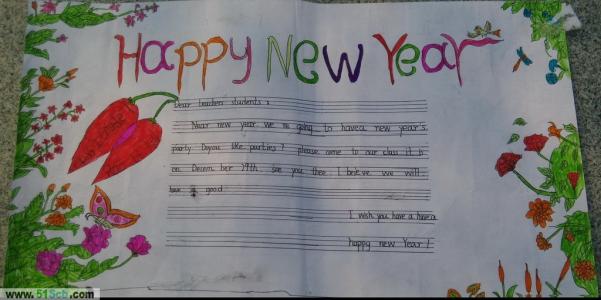 Happy New Year
Dear teachers students:
Near new year we are going to havea new year's
party Doyou like parties? please come to our class it is
on Decem ber 29th see you thee I beleve we will
have a good
I wish you have a havea
happy new Year!
www.51Scb.com